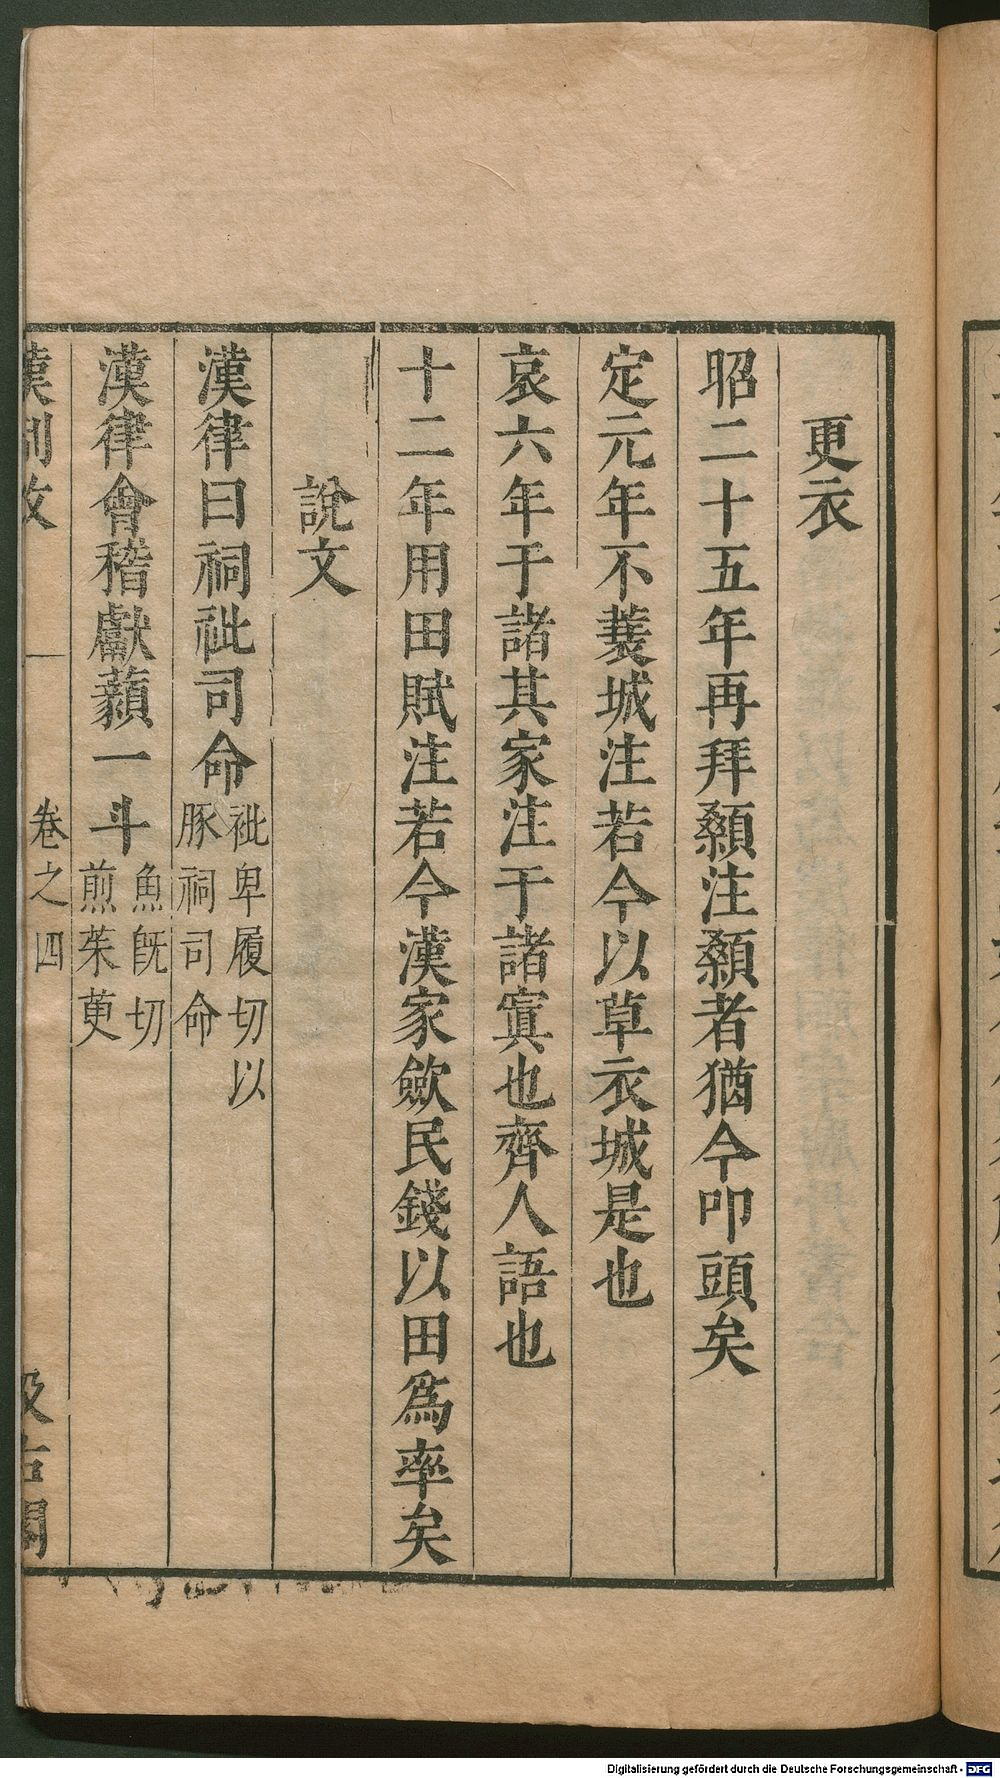 更衣
昭二十五年再拜顙注顙者猶今叩頭矣
定元年不蓑城注若今以草衣城是也
哀六年于諸其家注于諸寘也齊人語也
十二年用田賦注若今漢家斂民錢以田為率矣
說文
漢律曰祠祉司命祉卑履切以
豚祠司命
漢律會稽獻䔾一斗魚旣切
煎茱萸
漢制攷 卷之四 汲古閣
Digitalisierung gefördert durch die Deutsche Forschungsgemeinschaft - DFG